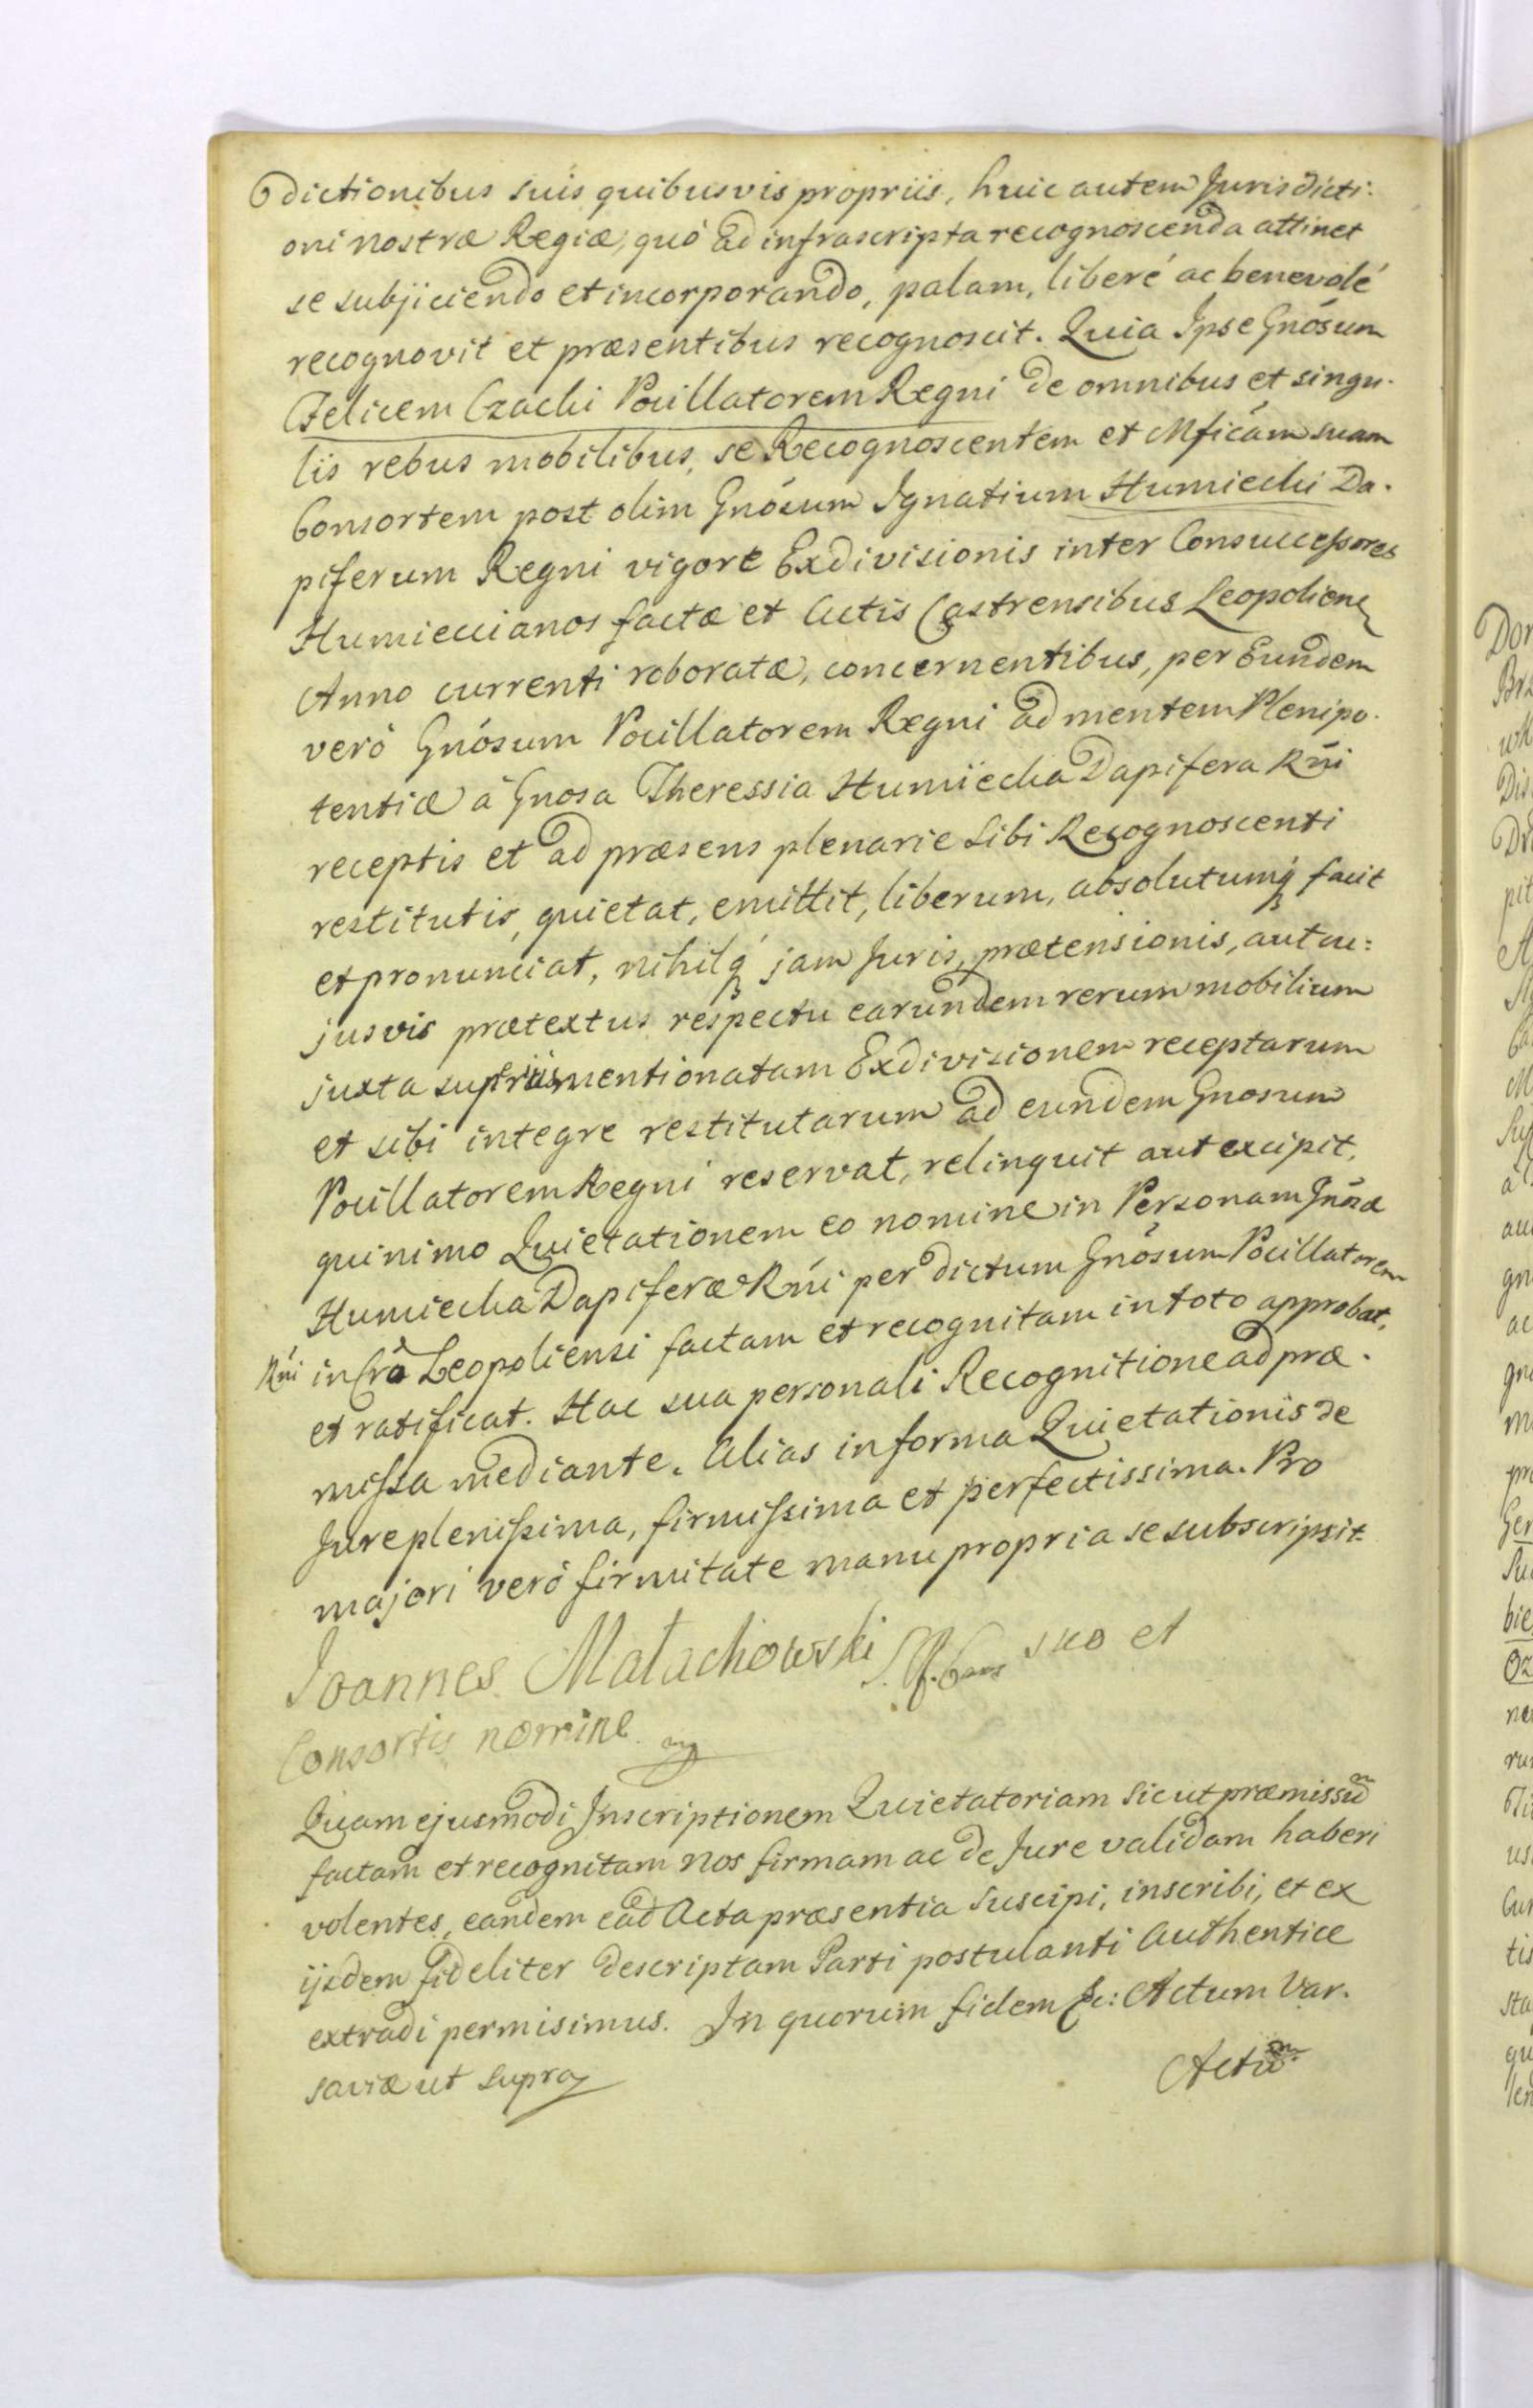 dictionibus suis quibusvis propriis, huic autem Jurisdicti:
oni nostræ Regiæ, quò ad infrascripta recognoscenda attinet
se subjiciendo et incorporando, palam, liberé ac benevolé
recognovit et præsentibus recognoscit. Quia Ipse Gnósum
Felicem Czacki Pocillatorem Regni de omnibus et singu-
lis rebus mobilibus, se Recognoscentem et Mficám suam
Consortem post olim Gnósum Ignatium Humiecki Da-
piferum Regni vigore Exdivisionis inter Consuccessores
Humieccianos factæ et Actis Castrensibus Leopolien
Anno currenti roboratæ, concernentibus, per Eundem
verò Gnósum Pocillatorem Regni ad mentem Plenipo-
tentiæ à Gnosa Theressia Humiecka Dapifera Rñi
receptis et ad præsens plenarie Sibi Recognoscenti
restitutis, quietat, emittit, liberum, absolutumq́ facit
et pronunciat, nihilq́ jam Juris, prætensionis, aut cu:
jusvis prætextus respectu earundem rerum mobilium
juxta superiùs mentionatam Exdivisionem receptarum
et sibi integre restitutarum ad eundem Gnosum
Pocillatorem Regni reservat, relinquit aut excipit,
quinimo Quietationem eo nomine in Personam Gnósæ
Humiecka Dapiferæ Rńi per dictum Gnósum Pocillatorem
Rńi in Crô Leopoliensi factam et recognitam in toto approbat,
et ratificat. Hac sua personali Recognitione ad præ-
missa mediante. Alias in forma Quietationis de
Jure plenissima, firmissima et perfectissima. Pro
majori verò firmitate manu propria se subscripsit.
Joannes Małachowski suo et
Consortis nomine mp
Quam ejusmodi Inscriptionem Quietatoriam Sicut præmissũ
factam et recognitam Nos firmam ac de Jure validam haberi
volentes, eandem ead Acta præsentia Suscipi, inscribi, et ex
ijsdem fideliter descriptam Parti postulanti Authentice
extradi permisimus. In quorum fidem &c: Actum Var-
saviæ ut Supra
Actũ